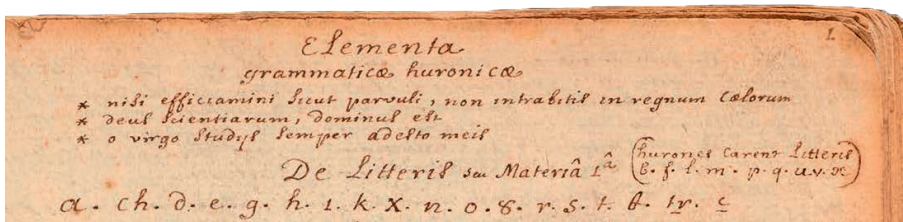 1
Elementa
grammaticæ huronicæ
* nisi efficiamini sicut parvuli, non intrabitis in regnum cælorum
* deus scientiarum, dominus est
* o virgo studijs semper adesto meis
De Litteris seu Materiâ 1â (hurones carent litteris
b. f. l. m. p. q. u. v. x)
a. ch. d. e. g. h. i. k. χ. n. o. 8. r. s. t.